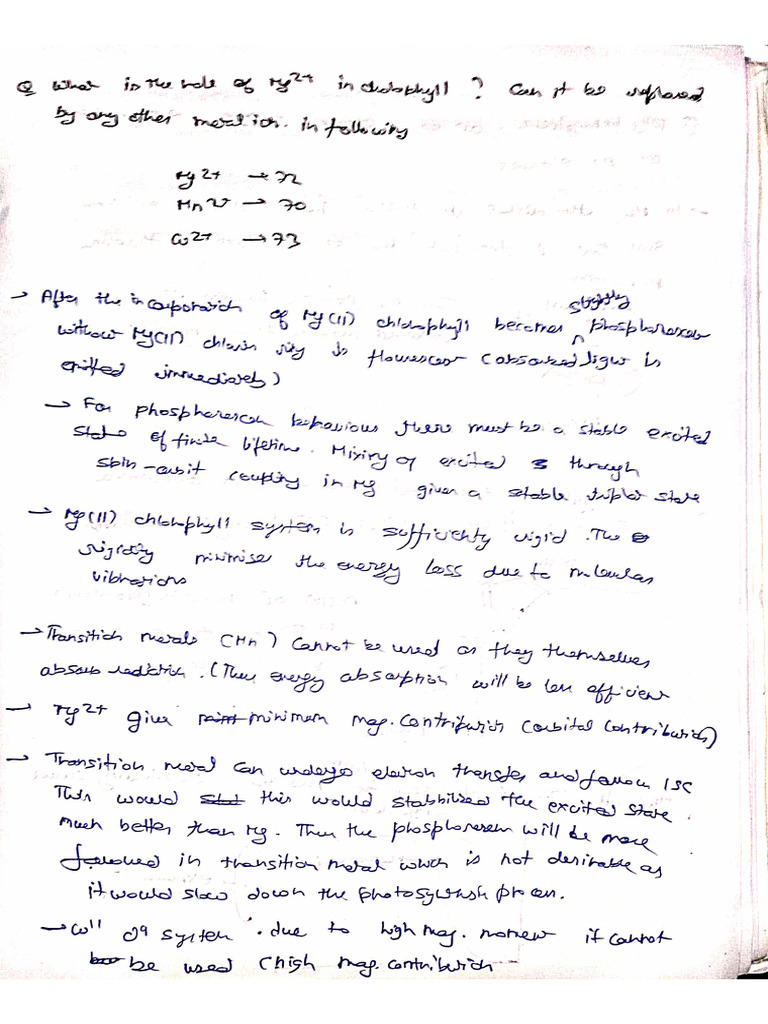 Q What is the role of Mg2+ in chlorophyll ? Can it be replaced
by any other metal ion. in following
Mg2+ → 72
Mn2+ → 70
Cu2+ → 73
→ After the incorporation of Mg(II) chlorophyll becomes slightly phosphorescen
without Mg(II) chlorin ring is flourescen (absorbed light is
emitted immediately)
→ For phosphorescen behaviour there must be a stable excited
state of finite lifetime. Mixing of excited s through
spin-orbit coupling in Mg given a stable triplet state
→ Mg(II) chlorophyll system is sufficienty rigid. The
rigidity minimise the energy loss due to molecular
vibrations
→ Transition metals (Mn) cannot be used as they themselves
absorb radiation. (Then energy absorption will be less efficient
→ Mg2+ give minimum mag. contribution (orbital contribution)
→ Transition metal can undergo electron transfer and favour ISC
This would this would stabbilized the excited state
much better than Mg. Then the phosphorescen will be more
favoured in transition metal which is not desirable as
it would slow down the photosynthesis process.
→ Cu II d9 system . due to high mag. moment it cannot
be used (high mag. contribution